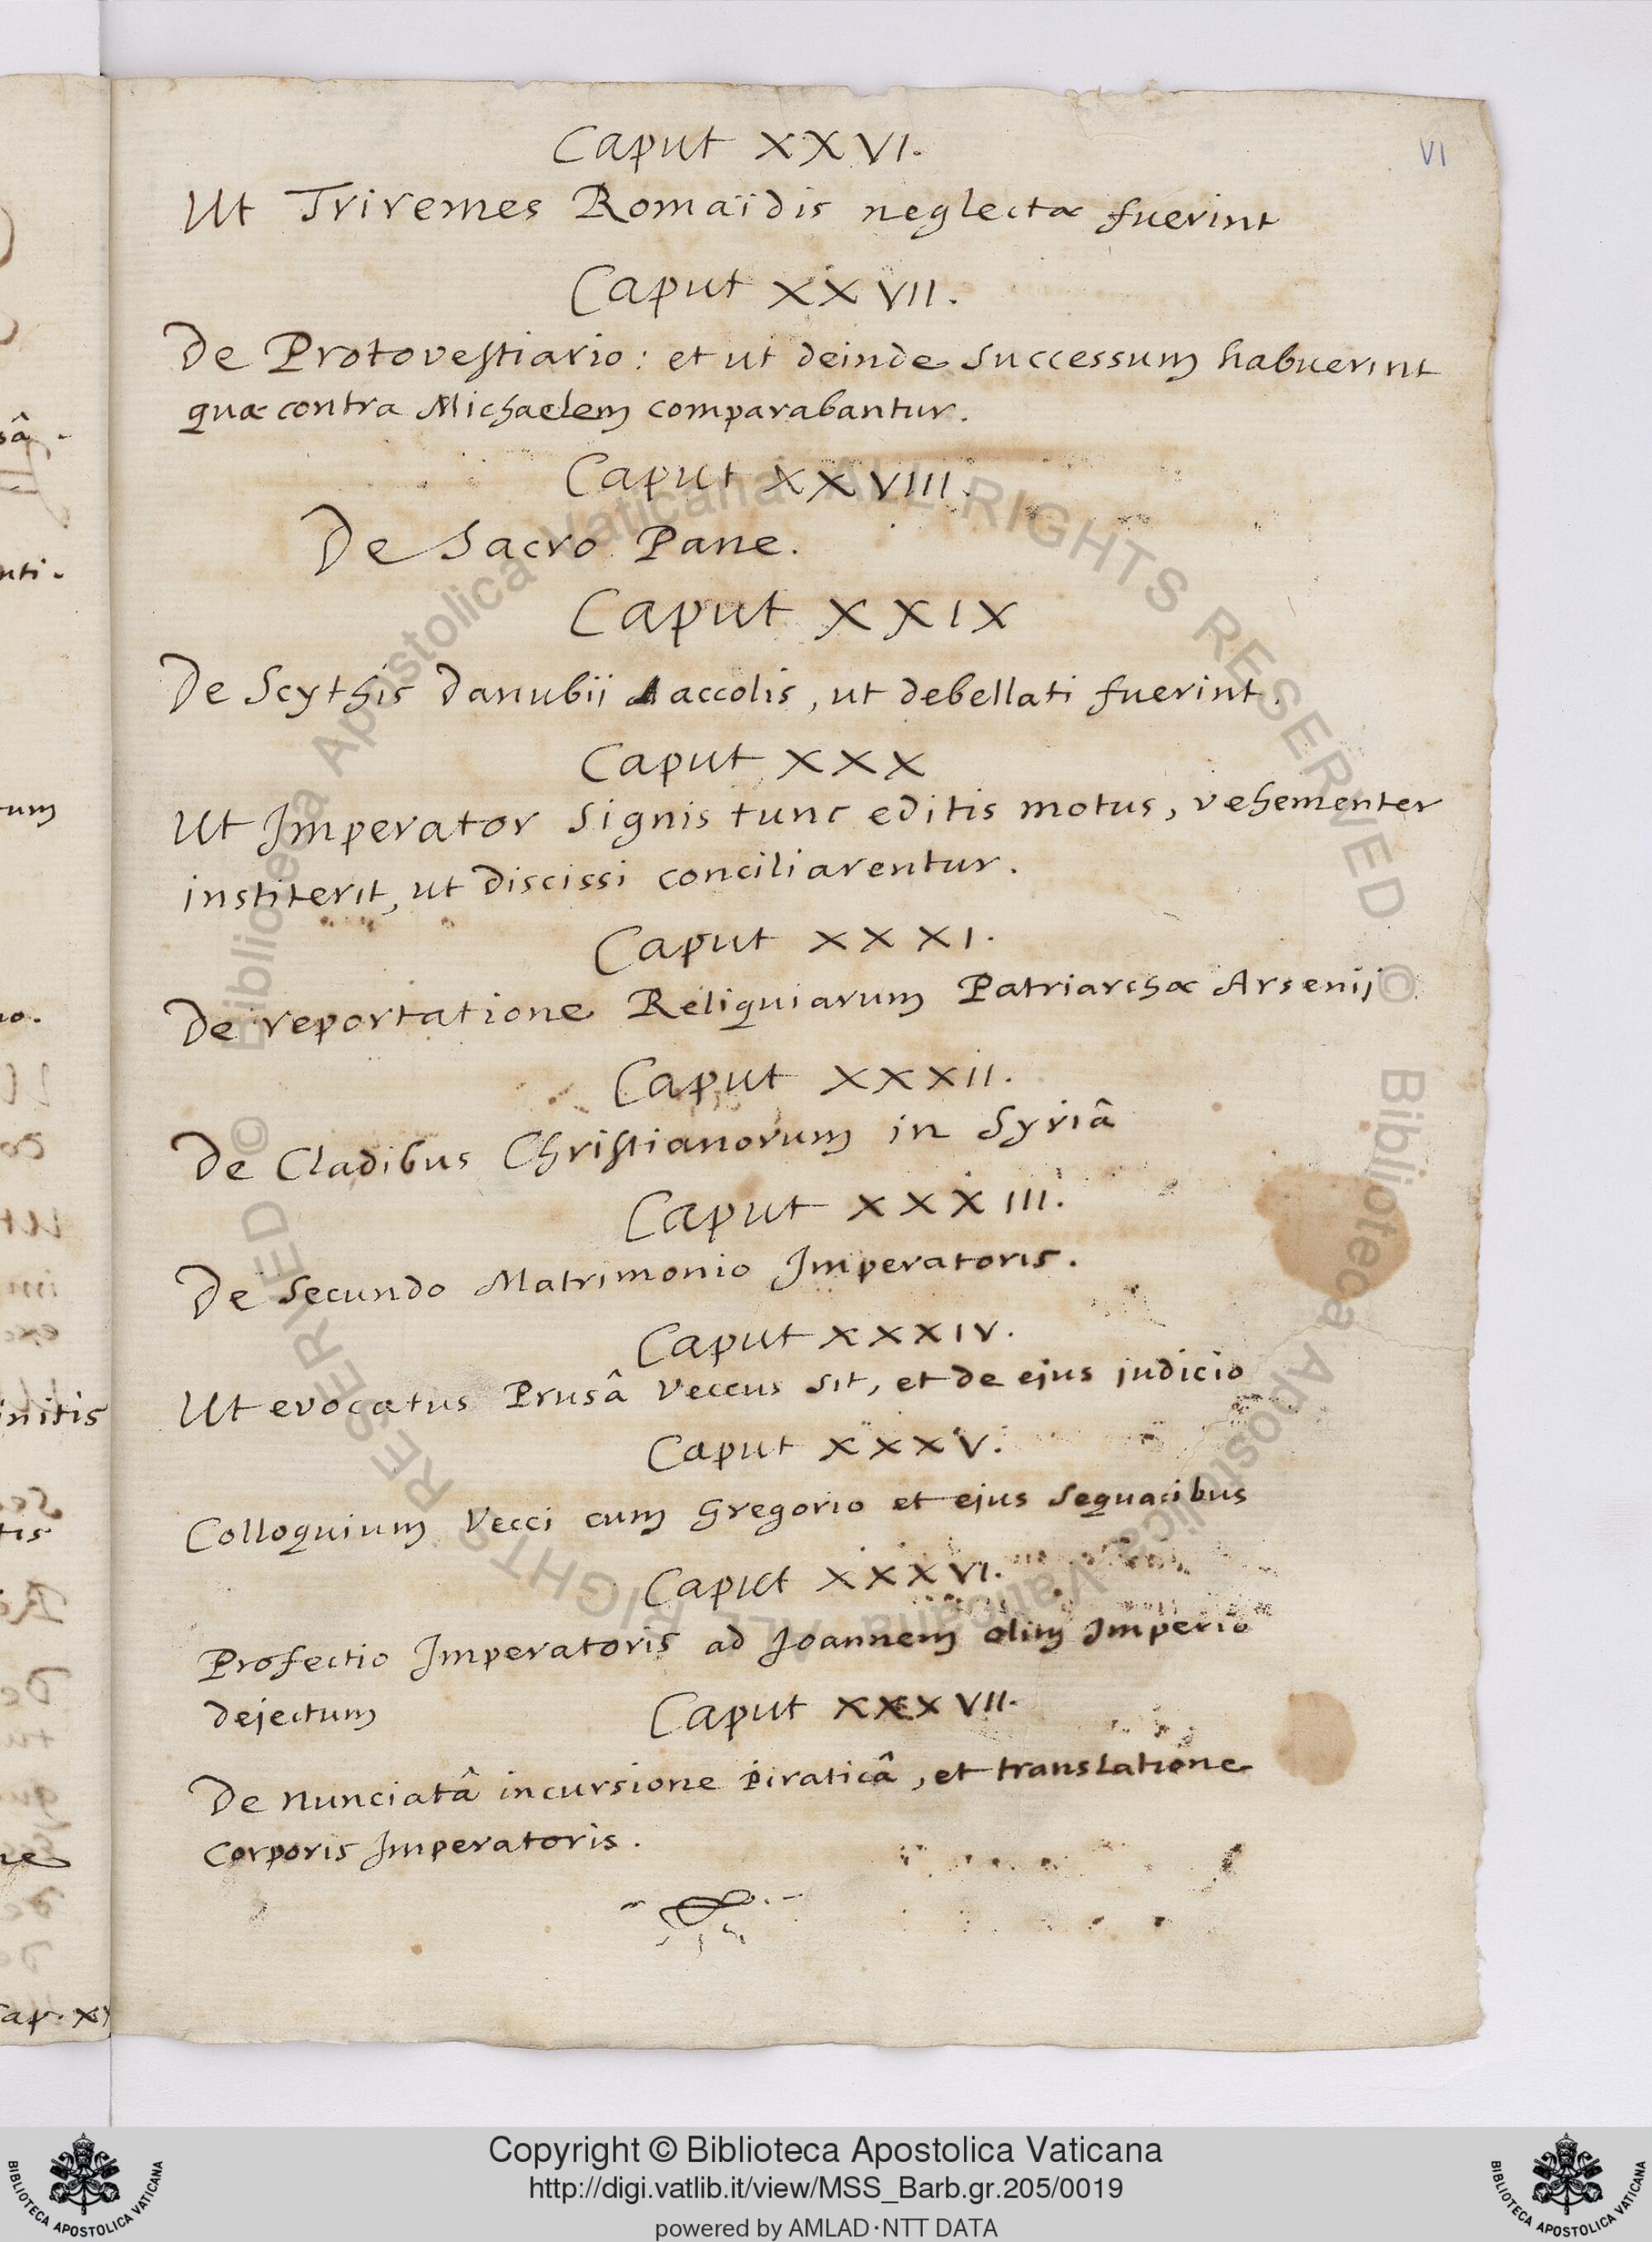 VI
Caput XXVI.
Ut Triremes Romaïdis neglectæ fuerint
Caput XXVII.
De Protovestiario: et ut deinde successum habuerint
quæ contra Michaelem comparabantur.
Caput XXVIII.
De Sacro Pane.
Caput XXIX
De Scythis Danubii accolis, ut debellati fuerint.
Caput XXX
Ut Imperator signis tunc editis motus, vehementer
institerit, ut discissi conciliarentur.
Caput XXXI.
De reportatione Reliquiarum Patriarchæ Arsenij
Caput XXXII.
De Cladibus Christianorum in Syriâ
Caput XXXIII.
De Secundo Matrimonio Imperatoris.
Caput XXXIV.
Ut evocatus Prusâ Veccus sit, et de ejus judicio
Caput XXXV.
Colloquium Vecci cum Gregorio et ejus sequacibus
Caput XXXVI.
Profectio Imperatoris ad Joannem olim Imperio
dejectum
Caput XXXVII.
De nunciatâ incursione piraticâ, et translatione
corporis Imperatoris.
Copyright © Biblioteca Apostolica Vaticana
http://digi.vatlib.it/view/MSS_Barb.gr.205/0019
powered by AMLAD·NTT DATA
BIBLIOTECA APOSTOLICA VATICANA
BIBLIOTECA APOSTOLICA VATICANA
© Biblioteca Apostolica Vaticana ALL RIGHTS RESERVED
© Biblioteca Apostolica Vaticana ALL RIGHTS RESERVED